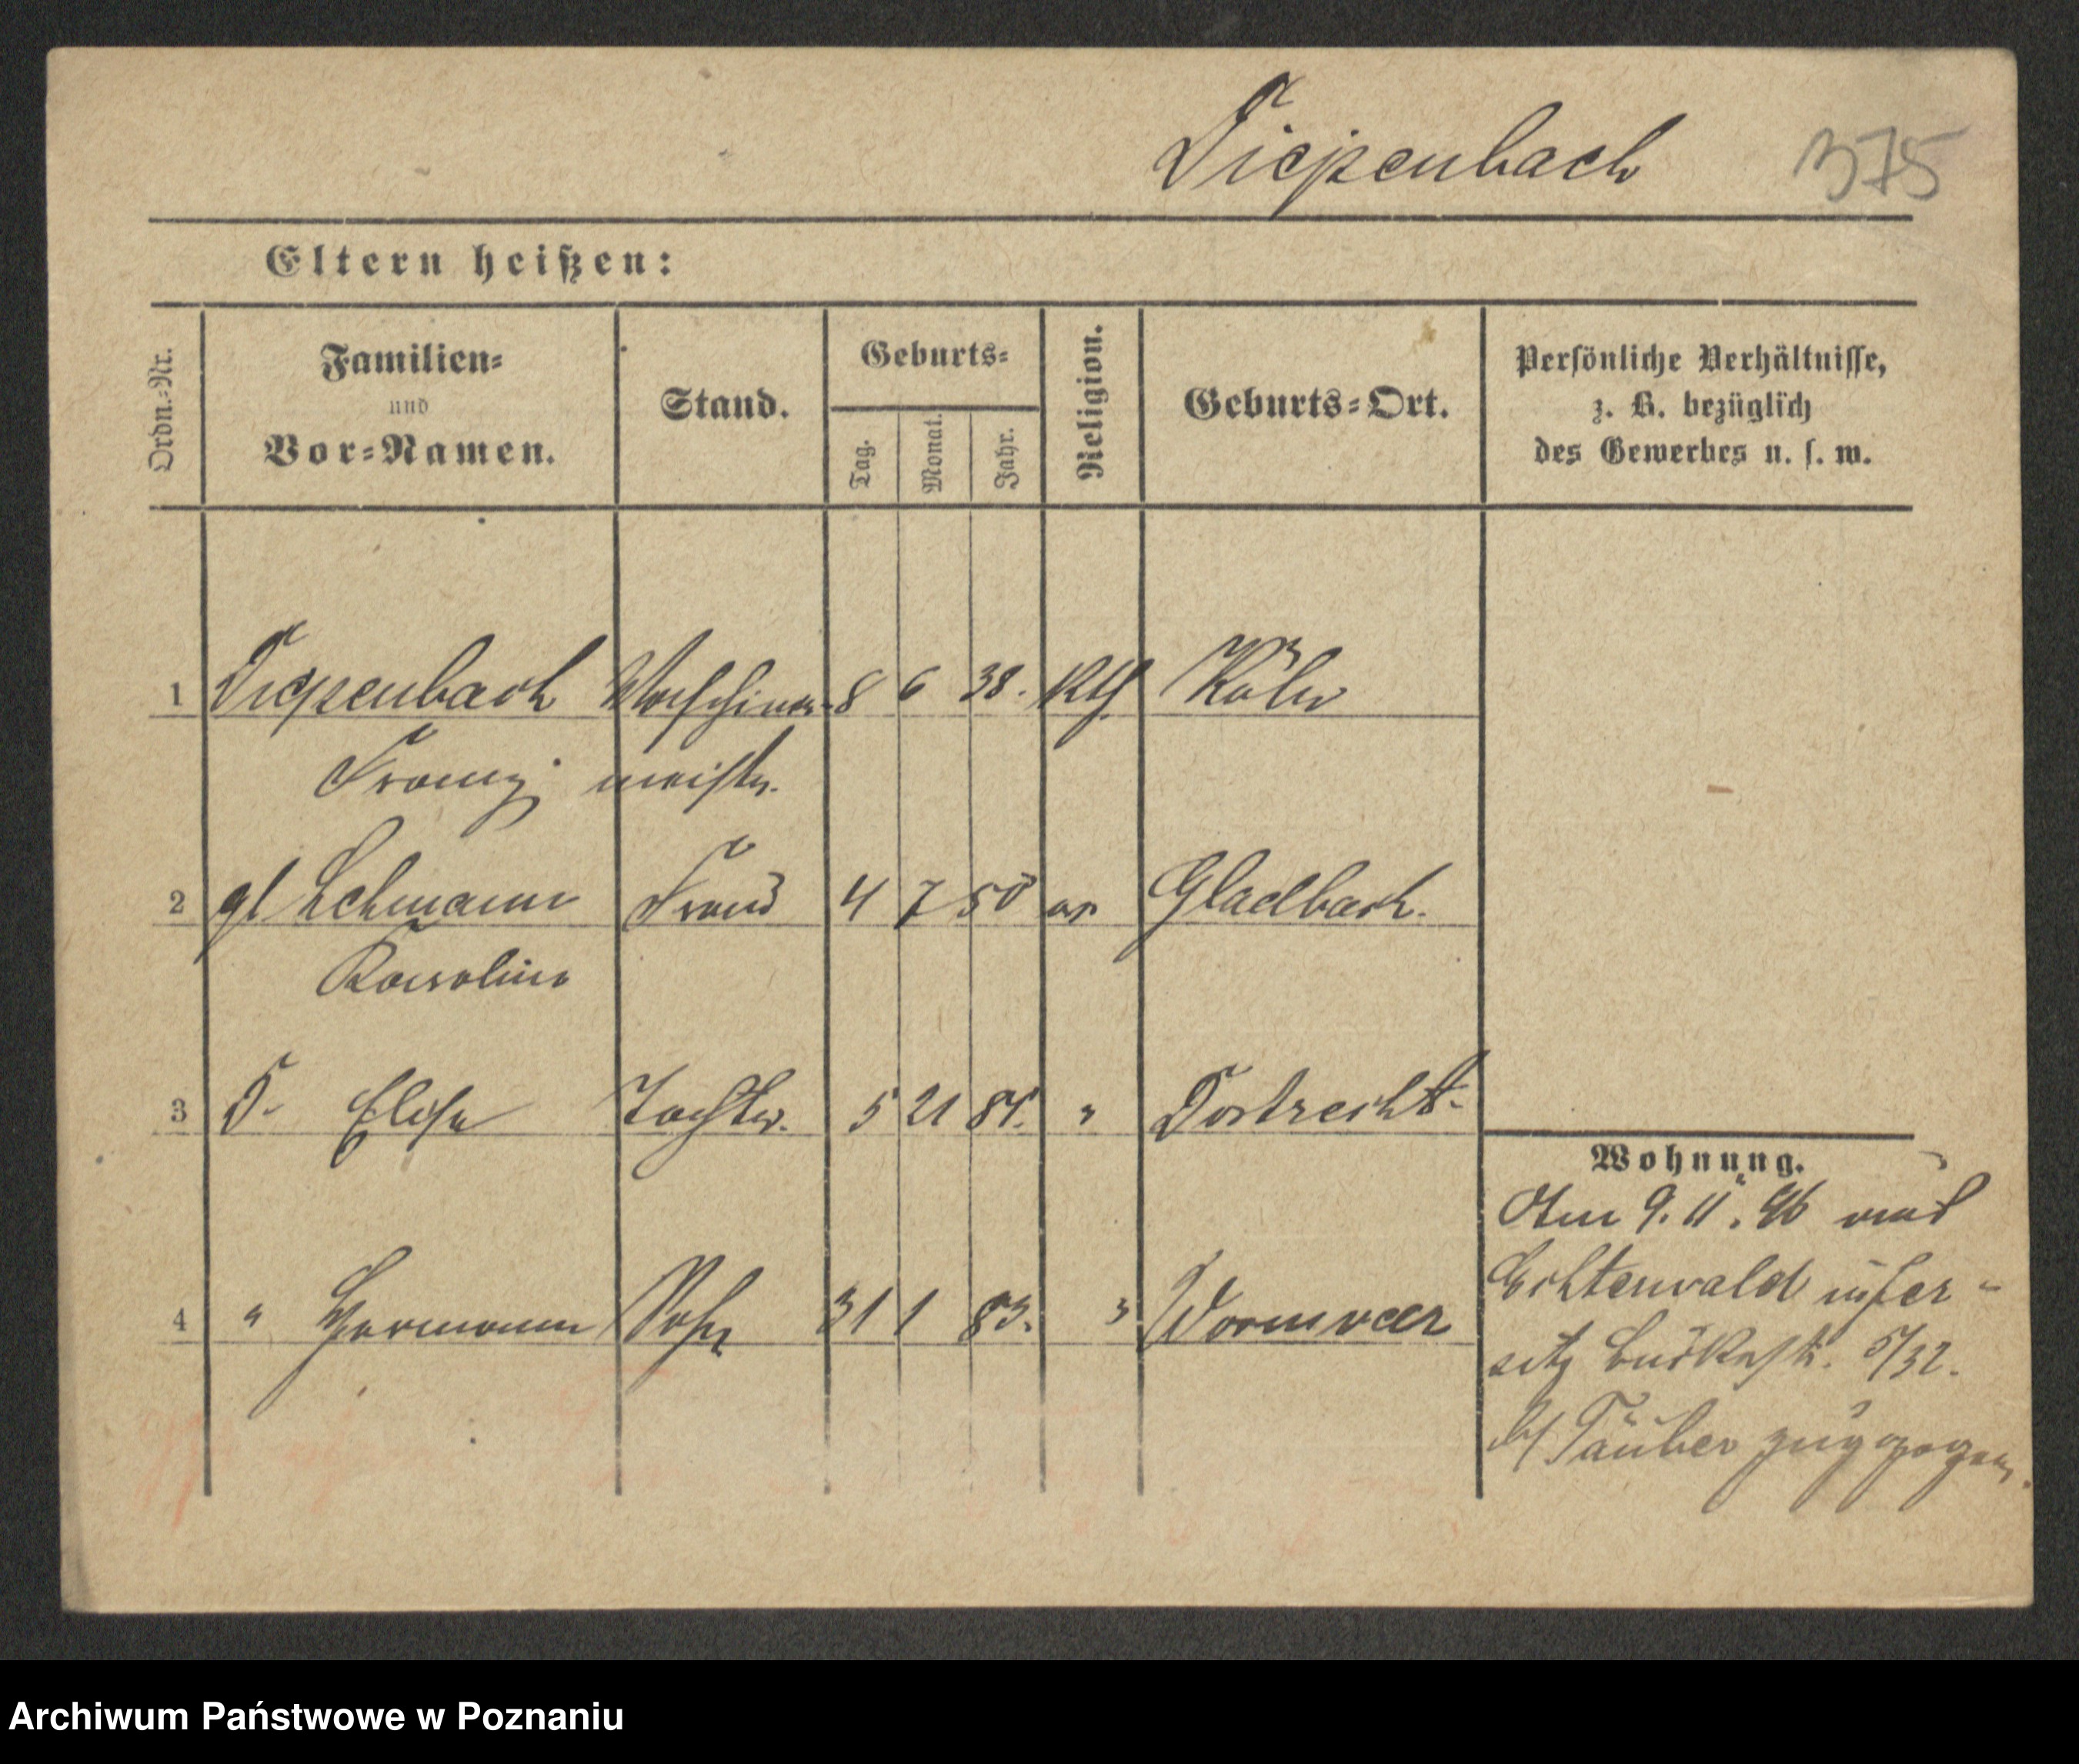 Diepenbach 375
Eltern heißen:
Ordn.-Nr.
Familien-
und
Vor-Namen.
Stand.
Geburts-
Tag.
Monat.
Jahr.
Religion.
Geburts-Ort.
Persönliche Verhältnisse,
z. B. bezüglich
des Gewerbes u. s. w.
1 Diepenbach Maschinen- 8 6 38. Kth. Köln
Franz meister.
2 gb Lehmann Frau 4 7 50 ev Gladbach.
Karoline
3 D. Elise Tochter. 5 21 81. " Dortrecht.
4 " Hermann Sohn 31 1 83. " Wormveer
Wohnung.
Am 9. 11. 96 aus
5/32.
b/ Täuber zugezogen.
Archiwum Państwowe w Poznaniu